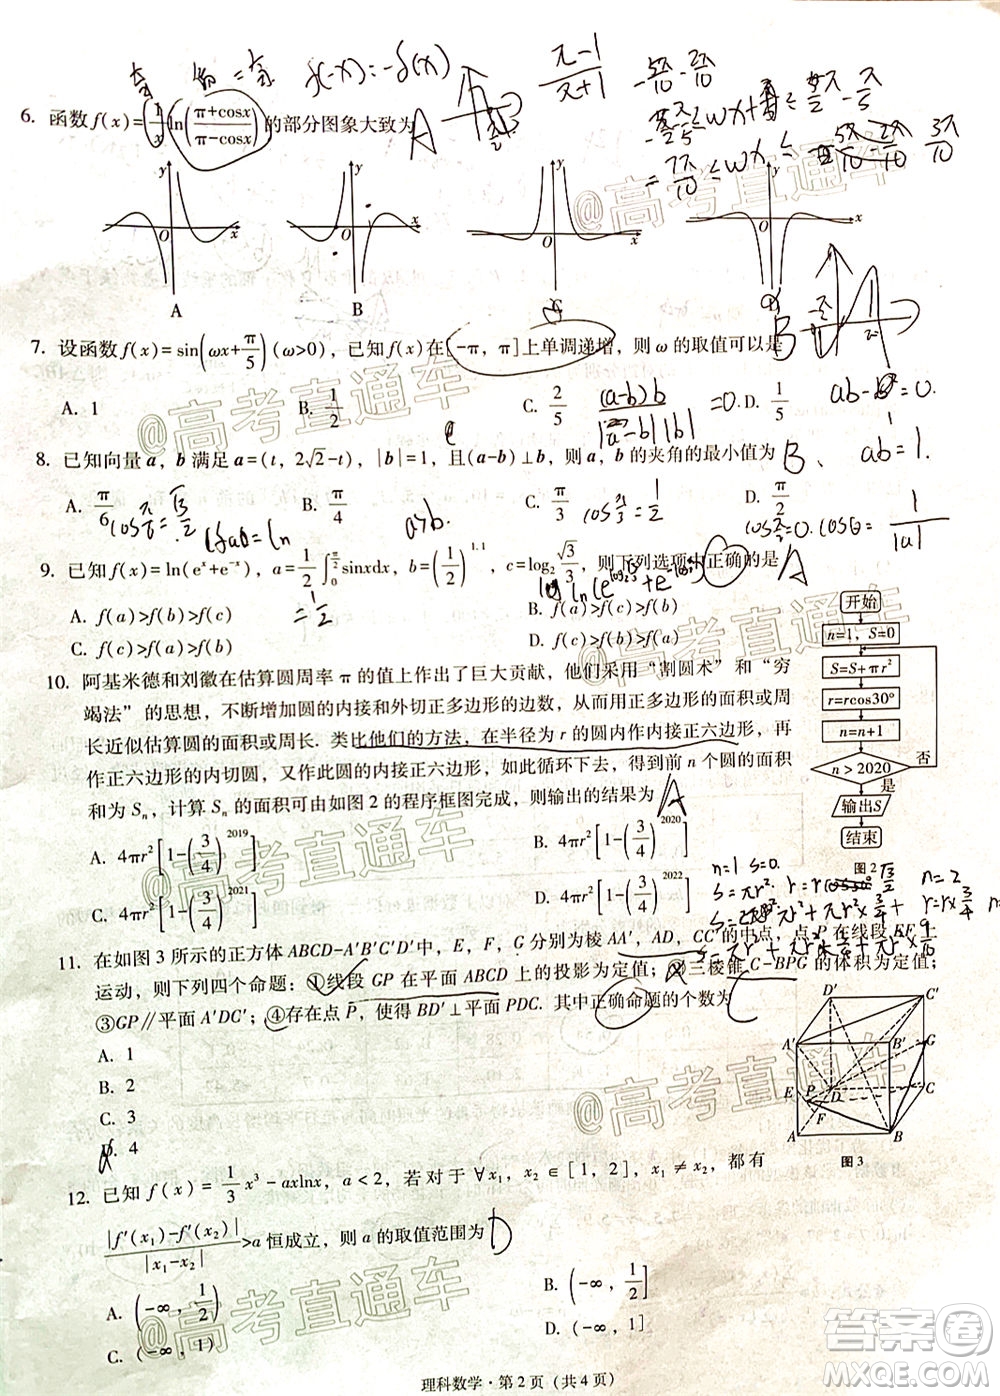 奇 偶 = 奇 f(-x)=-f(x)
π-1/π+1
6. 函数 f(x)=1/x ln((π+cosx)/(π-cosx))的部分图象大致为 A
y x O A
y x O B
y x O C
y x O D
7. 设函数 f(x)=sin(ωx+π/5)(ω>0), 已知 f(x)在[-π, π]上单调递增, 则 ω 的取值可以是 B
A. 1
B. 1/2
C. 2/5
D. 1/5
(a-b)b/|a-b||b| =0
ab=1.
8. 已知向量 a, b 满足 a=(t, 2√2-t), |b|=1, 且(a-b)⊥b, 则 a, b 的夹角的最小值为 B
A. π/6
B. π/4
C. π/3
D. π/2
cos π/6=√3/2
a>b.
cos π/3=1/2
cos π/2=0. cosθ=1/|a|
9. 已知 f(x)=ln(e^x+e^-x), a=1/2 ∫_0^(π/2) sinxdx, b=(1/2)^1.1, c=log_2 √3/3, 则下列选项中正确的是 A
=1/2
A. f(a)>f(b)>f(c)
B. f(b)>f(a)>f(c)
C. f(c)>f(a)>f(b)
D. f(c)>f(b)>f(a)
10. 阿基米德和刘徽在估算圆周率 π 的值上作出了巨大贡献, 他们采用“割圆术”和“穷
竭法”的思想, 不断增加圆的内接和外切正多边形的边数, 从而用正多边形的面积或周
长近似估算圆的面积或周长. 类比他们的方法, 在半径为 r 的圆内作内接正六边形, 再
作正六边形的内切圆, 又作此圆的内接正六边形, 如此循环下去, 得到前 n 个圆的面积
和为 S_n, 计算 S_n 的面积可由如图 2 的程序框图完成, 则输出的结果为 A
A. 4πr²[1-(3/4)^2019]
B. 4πr²[1-(3/4)^2020]
C. 4πr²[1-(3/4)^2021]
开始
n=1, S=0
S=S+πr²
r=rcos30°
n=n+1
n>2020
否
是
输出S
结束
图2
n=1 s=0.
n=2
11. 在如图 3 所示的正方体 ABCD-A'B'C'D'中, E, F, G 分别为棱 AA', AD, CC'的中点, 点 P 在线段 EF 上
运动, 则下列四个命题: ①线段 GP 在平面 ABCD 上的投影为定值; ②三棱锥 C-BPG 的体积为定值;
③GP∥平面 A'DC'; ④存在点 P, 使得 BD'⊥平面 PDC. 其中正确命题的个数为 C
A. 1
B. 2
C. 3
D. 4
D' C' A' B' G E P D C F A B
图3
12. 已知 f(x)=1/3 x³-axlnx, a<2, 若对于∀x₁, x₂∈[1, 2], x₁≠x₂, 都有
|f'(x₁)-f'(x₂)|/|x₁-x₂|>a 恒成立, 则 a 的取值范围为 D
A. (-∞, 1/2)
B. (-∞, 1/2]
C. (-∞, 1)
D. (-∞, 1]
理科数学·第 2 页(共 4 页)
@高考直通车
@高考直通车
@高考直通车
@高考直通车
@高考直通车
@高考直通车
@高考直通车
答案圈
MXQE.COM